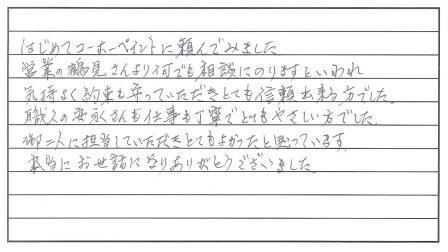 はじめてユーホーペイントに頼んでみました
営業の鶴見さんより何でも相談にのりますといわれ
気持よく約束も守っていただきとても信頼出来る方でした。
職人の安永さんも仕事も丁寧でとてもやさしい方でした。
御二人に担当していただきとてもよかったと思っています。
本当にお世話になりありがとうございました。